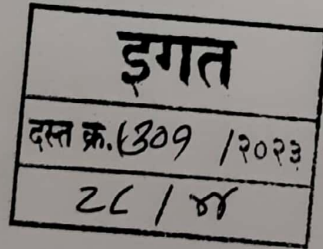 इगत
दस्त क्र. ६३०९ /२०२३
२८ / ४४